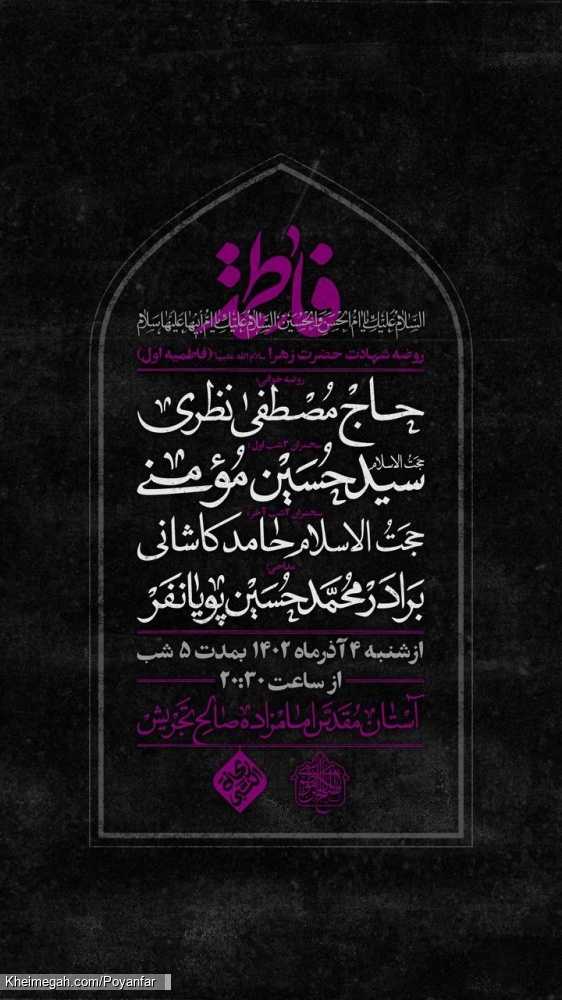 فاطمة
السلام علیک یا ام الحسن والحسین السلام علیک یا ام ابیها علیها سلام
روضه شهادت حضرت زهرا سلام الله علیها (فاطمیه اول)
روضه خوانی:
حاج مصطفی نظری
سخنران ۳ شب اول:
حجت الاسلام سید حسین مؤمنی
سخنران ۲ شب آخر:
حجت الاسلام حامد کاشانی
مداحی:
برادر محمدحسین پویانفر
از شنبه ۴ آذرماه ۱۴۰۲ بمدت ۵ شب
از ساعت ۲۰:۳۰
آستان مقدس امامزاده صالح تجریش
Kheimegah.com/Poyanfar